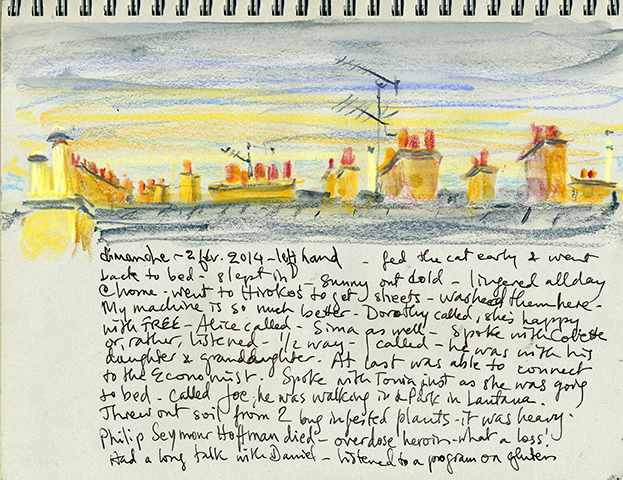 dimanche - 2 fév. 2014 - left hand - fed the cat early & went
back to bed - slept in! - sunny out cold - lingered all day
@ home - went to Hiroko's to get sheets - washed them here -
My machine is so much better - Dorothy called, she's happy
with FREE - Alice called - Sima as well - Spoke with Colette
or, rather, listened - 1/2 way - called - he was with his
daughter & granddaughter. At last was able to connect
to the Economist. Spoke with Tonia just as she was going
to bed - called Joe, he was walking in a Park in Lantana.
Threw out soil from 2 bug infested plants - it was heavy.
Philip Seymour Hoffman died - overdose heroin - what a loss!
Had a long talk with Daniel - listened to a program on gluten